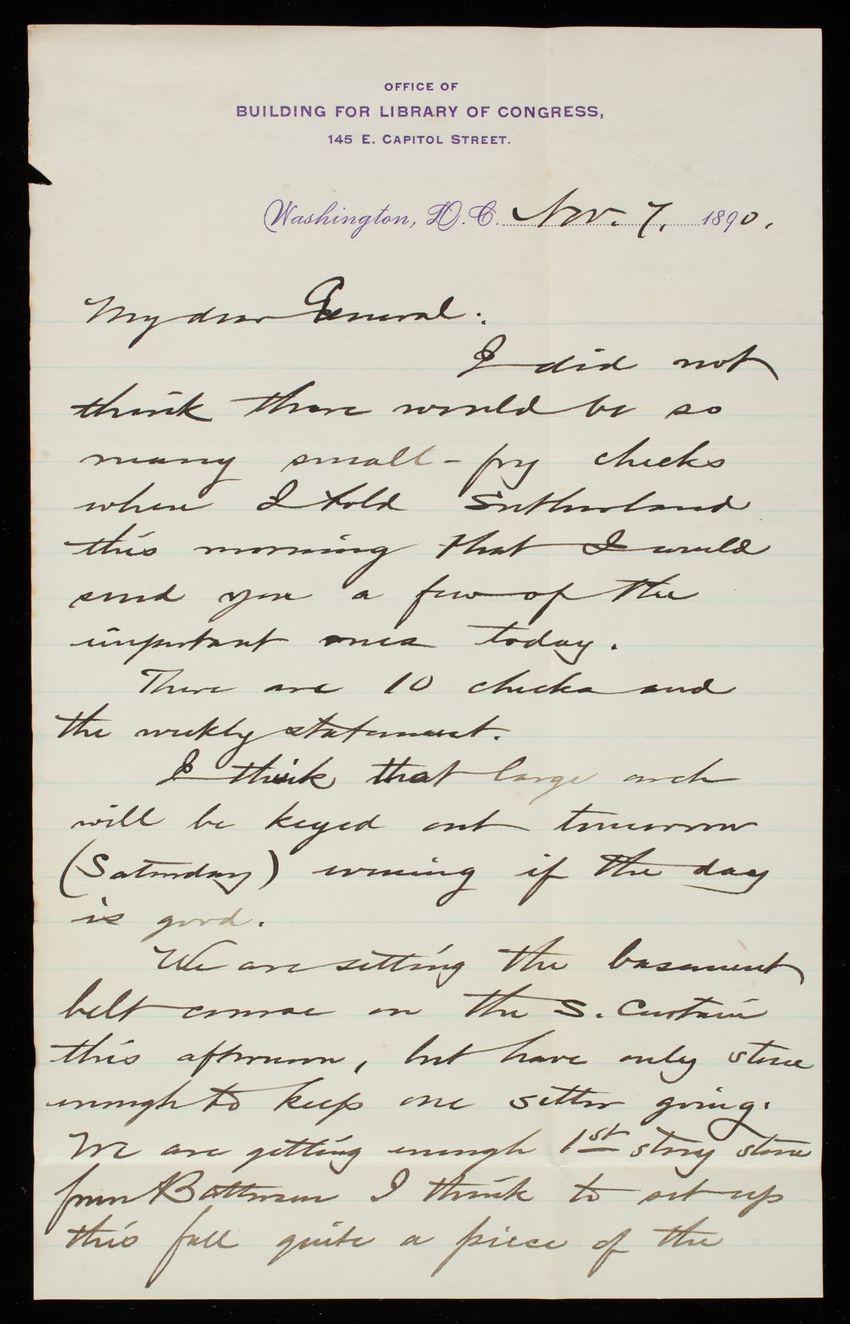 OFFICE OF
BUILDING FOR LIBRARY OF CONGRESS,
145 E. CAPITOL STREET.
Washington, D.C. Nov. 7, 1890.
My dear General:
I did not
think there would be so
many small-fry checks
when I told Sutherland
this morning that I would
send you a few of the
important ones today.
There are 10 checks and
the weekly statement.
I think that large arch
will be keyed out tomorrow
(Saturday) evening if the day
is good.
We are setting the basement
belt course on the S. Curtain
this afternoon, but have only stone
enough to keep one setter going.
We are getting enough 1st story stone
from Batterson I think to set up
this fall quite a piece of the